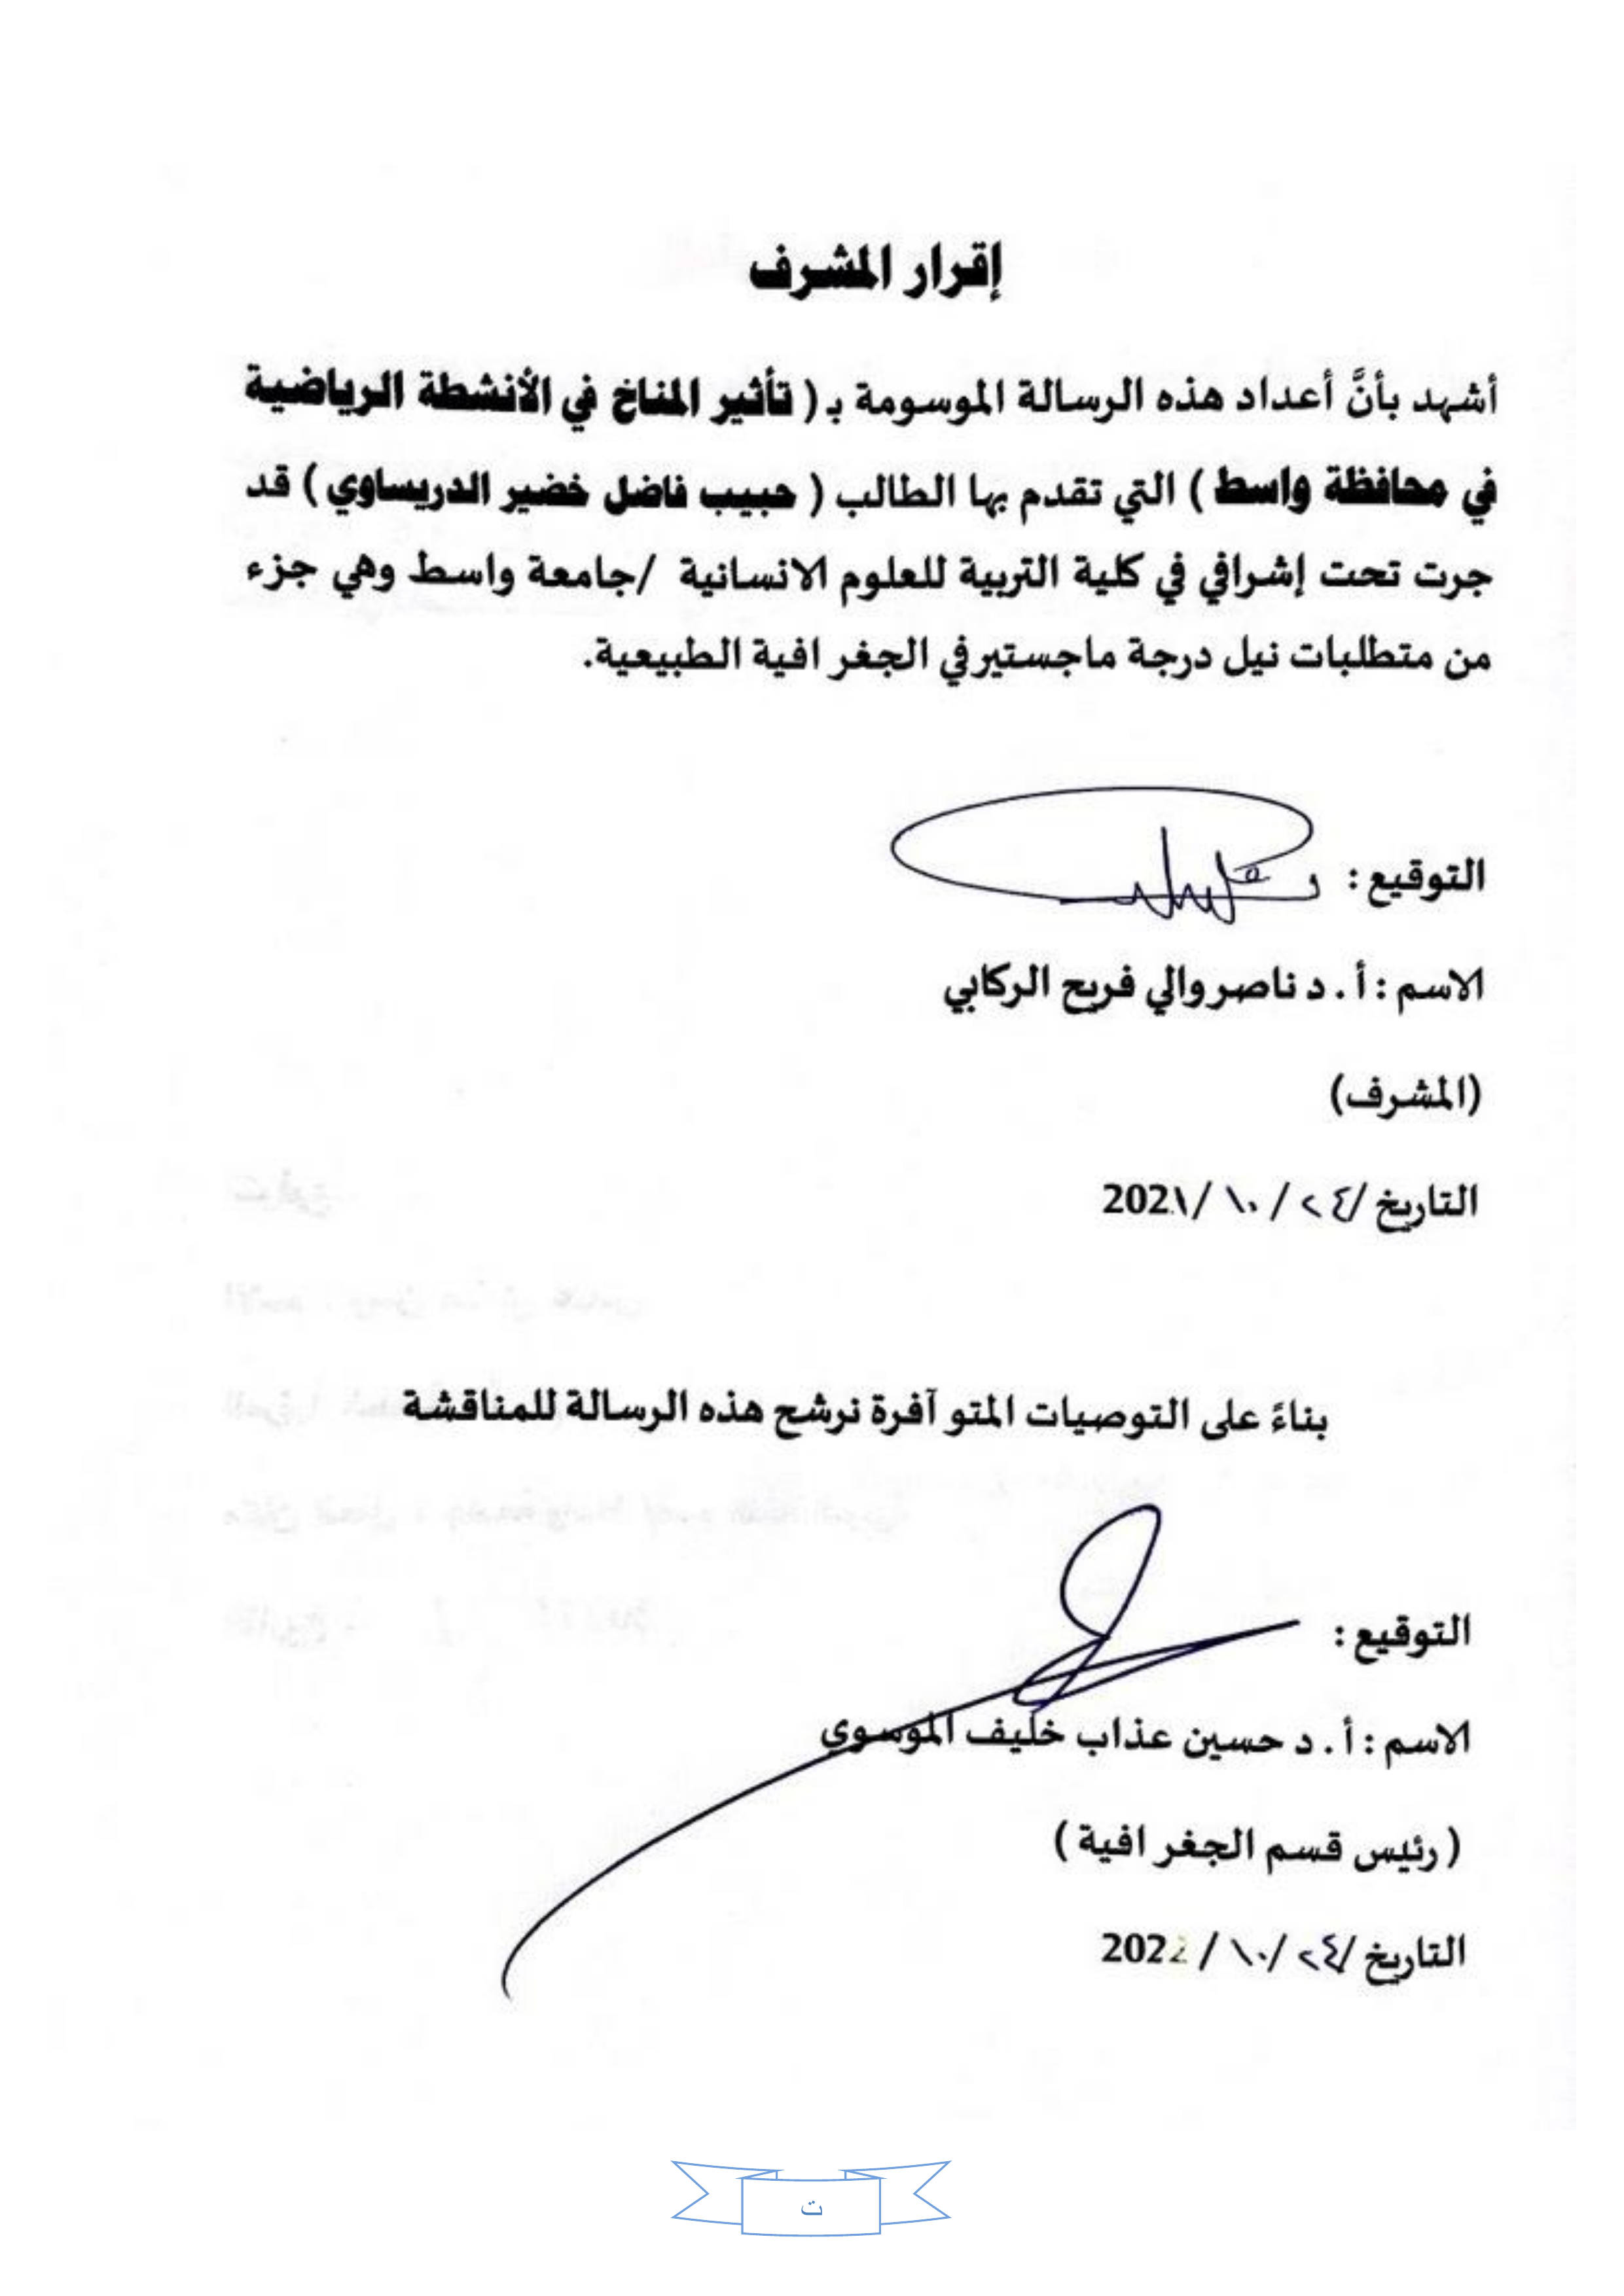 إقرار المشرف
أشهد بأنَّ أعداد هذه الرسالة الموسومة بـ ( تأثير المناخ في الأنشطة الرياضية
في محافظة واسط ) التي تقدم بها الطالب ( حبيب فاضل خضير الدريساوي ) قد
جرت تحت إشرافي في كلية التربية للعلوم الانسانية /جامعة واسط وهي جزء
من متطلبات نيل درجة ماجستير في الجغرافية الطبيعية.
التوقيع :
الاسم : أ . د ناصر والي فريح الركابي
(المشرف)
التاريخ /٢٤ / ١٠ /202١
بناءً على التوصيات المتوآفرة نرشح هذه الرسالة للمناقشة
التوقيع :
الاسم : أ . د حسين عذاب خليف الموسوي
( رئيس قسم الجغرافية )
التاريخ /٢٤ /١٠ / 202
ت